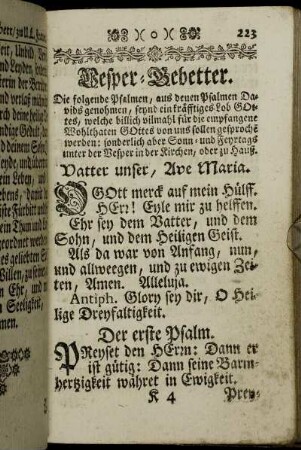 223
Vesper-Gebetter.
Die folgende Psalmen, aus denen Psalmen Da-
vids genohmen, seynd ein kräfftiges Lob GOt-
tes, welche billich vilmahl für die empfangene
Wohlthaten GOttes von uns sollen gesprochẽ
werden: sonderlich aber Sonn- und Feyrtags
unter der Vesper in der Kirchen, oder zu Hauß.
Vatter unser, Ave Maria.
O GOtt merck auf mein Hülff.
HErr! Eyle mir zu helffen.
Ehr sey dem Vatter, und dem
Sohn, und dem Heiligen Geist.
Als da war von Anfang, nun,
und allweegen, und zu ewigen Zei-
ten, Amen. Alleluja.
Antiph. Glory sey dir, O Hei-
lige Dreyfaltigkeit.
Der erste Psalm.
PReyset den HErrn: Dann er
ist gütig: Dann seine Barm-
hertzigkeit währet in Ewigkeit.
K 4 Prey-